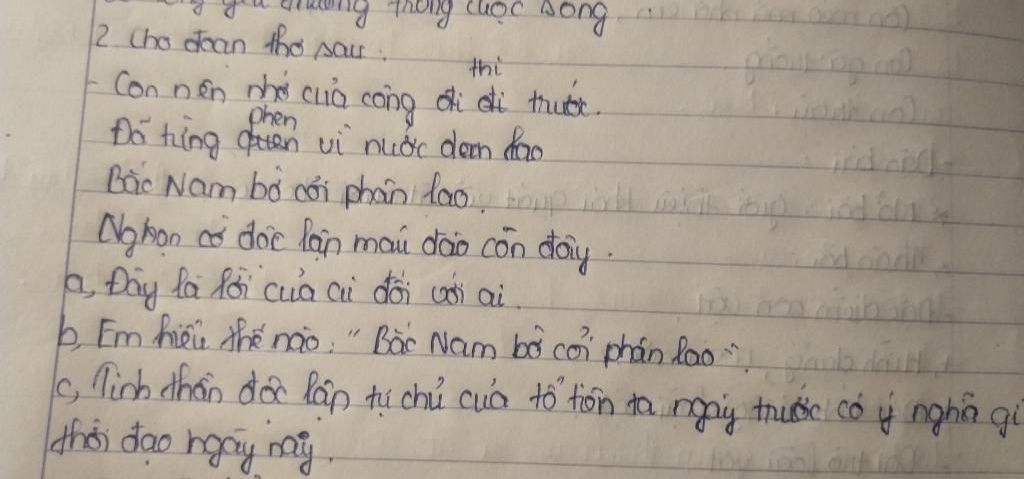 yêu thương trong cuộc sống
2 Cho đoạn thơ sau:
- Con nên nhớ của công đi thì đi trước.
Đã từng phen vì nước dan lao
Bắc Nam bờ cõi phân lao.
Ngọn cờ độc lập máu đào còn đây.
a, Đây là lời của ai đối với ai.
b, Em hiểu thế nào: "Bắc Nam bờ cõi phân lao".
c, Tinh thần độc lập tự chủ của tổ tiên ta ngày trước có ý nghĩa gì
thời đạo ngày nay.